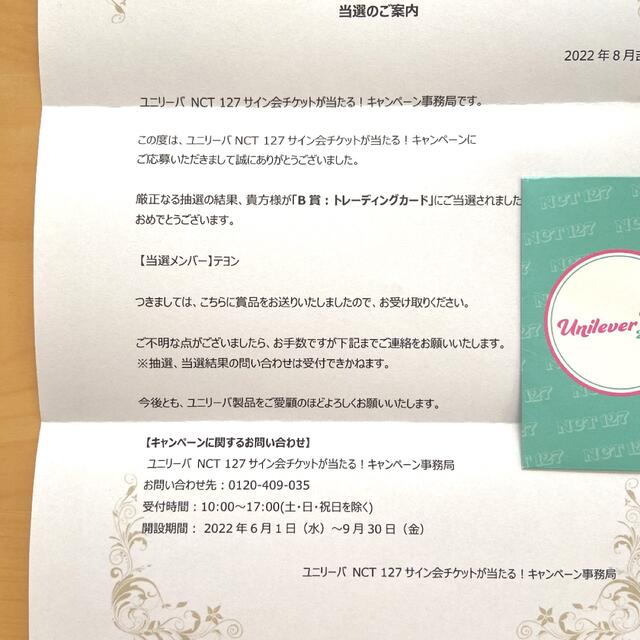 当選のご案内
2022年8月吉
ユニリーバ NCT 127 サイン会チケットが当たる！キャンペーン事務局です。
この度は、ユニリーバ NCT 127 サイン会チケットが当たる！キャンペーンに
ご応募いただきまして誠にありがとうございました。
厳正なる抽選の結果、貴方様が「B 賞：トレーディングカード」にご当選されました
おめでとうございます。
【当選メンバー】テヨン
つきましては、こちらに賞品をお送りいたしましたので、お受け取りください。
ご不明な点がございましたら、お手数ですが下記までご連絡をお願いいたします。
※抽選、当選結果の問い合わせは受付できかねます。
今後とも、ユニリーバ製品をご愛顧のほどよろしくお願いいたします。
【キャンペーンに関するお問い合わせ】
ユニリーバ NCT 127 サイン会チケットが当たる！キャンペーン事務局
お問い合わせ先：0120-409-035
受付時間：10:00～17:00(土・日・祝日を除く)
開設期間：2022年6月1日（水）～9月30日（金）
ユニリーバ NCT 127 サイン会チケットが当たる！キャンペーン事務局
NCT 127
NCT 127
Unilever
2
NCT 127
NCT 127